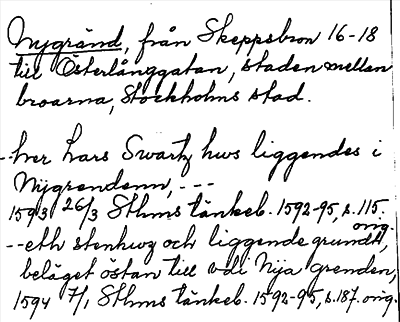 Nygränd, från Skeppsbron 16-18
till Österlånggatan, staden mellan
broarna, Stockholms stad.
--her Lars Swartz hws liggendes i
Nÿgrendenn, ---
1593 26/3 Sthms tänkeb. 1592-95, s. 115.
orig.
--eth stenhwz och liggende grundtt,
beläget östan till vdi Nÿa grenden,
1594 7/1 Sthms tänkeb. 1592-95, s. 187. orig.